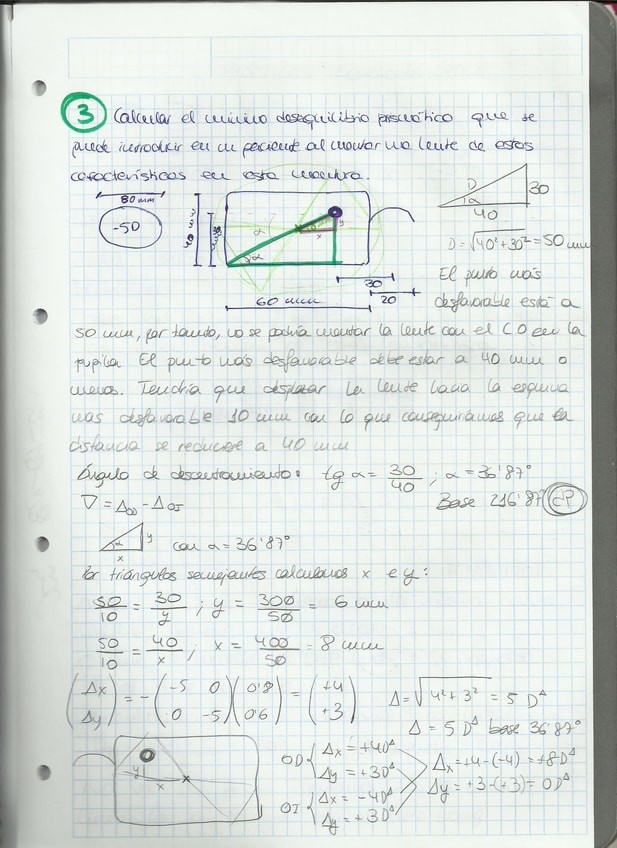 3 Calcular el mínimo desequilibrio prismático que se
puede introducir en un paciente al montar una lente de estas
características en esta montura.
80 mm
-5D
α
α
x
y
30
20
60 mm
D
α
30
40
D = √40²+30² = 50 mm
El punto más
desfavorable está a
50 mm, por tanto, no se podría montar la lente con el CO en la
pupila. El punto más desfavorable debe estar a 40 mm o
menos. Tendría que desplazar la lente hacia la esquina
más desfavorable 10 mm con lo que conseguiríamos que la
distancia se reduciese a 40 mm
Ángulo de descentramiento: tg α = 30/40 ; α = 36'87°
Base 216'87
∇ = Δ OD - Δ OI
α
x
y
con α = 36'87°
Por triángulos semejantes calculamos x e y:
50/10 = 30/y ; y = 300/50 = 6 mm
50/10 = 40/x ; x = 400/50 = 8 mm
(Δx Δy) = -(-5 0 0 -5)(0'8 0'6) = (+4 +3)
Δ = √4²+3² = 5 D^Δ
Δ = 5 D^Δ base 36'87°
y
x
OD { Δx = +4D^Δ
Δy = +3D^Δ
OI { Δx = -4D^Δ
Δy = +3D^Δ
Δx = +4-(-4) = +8D^Δ
Δy = +3-(+3) = 0D^Δ